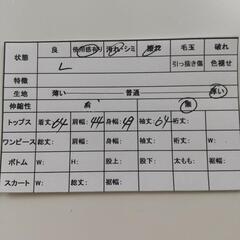 状態 良 使用感有り 汚れ・シミ 毛玉 破れ
L 引っ掻き傷 色褪せ
特徴
生地 薄い 普通 厚い
伸縮性 有 無
トップス 着丈:64 肩幅:44 身幅:49 袖丈:64 裄丈:
ワンピース 総丈: 肩幅: 身幅: 袖丈: 裄丈:
ボトム W: H: 股上: 股下: 太もも: 裾幅:
スカート W: 総丈: 裾幅: